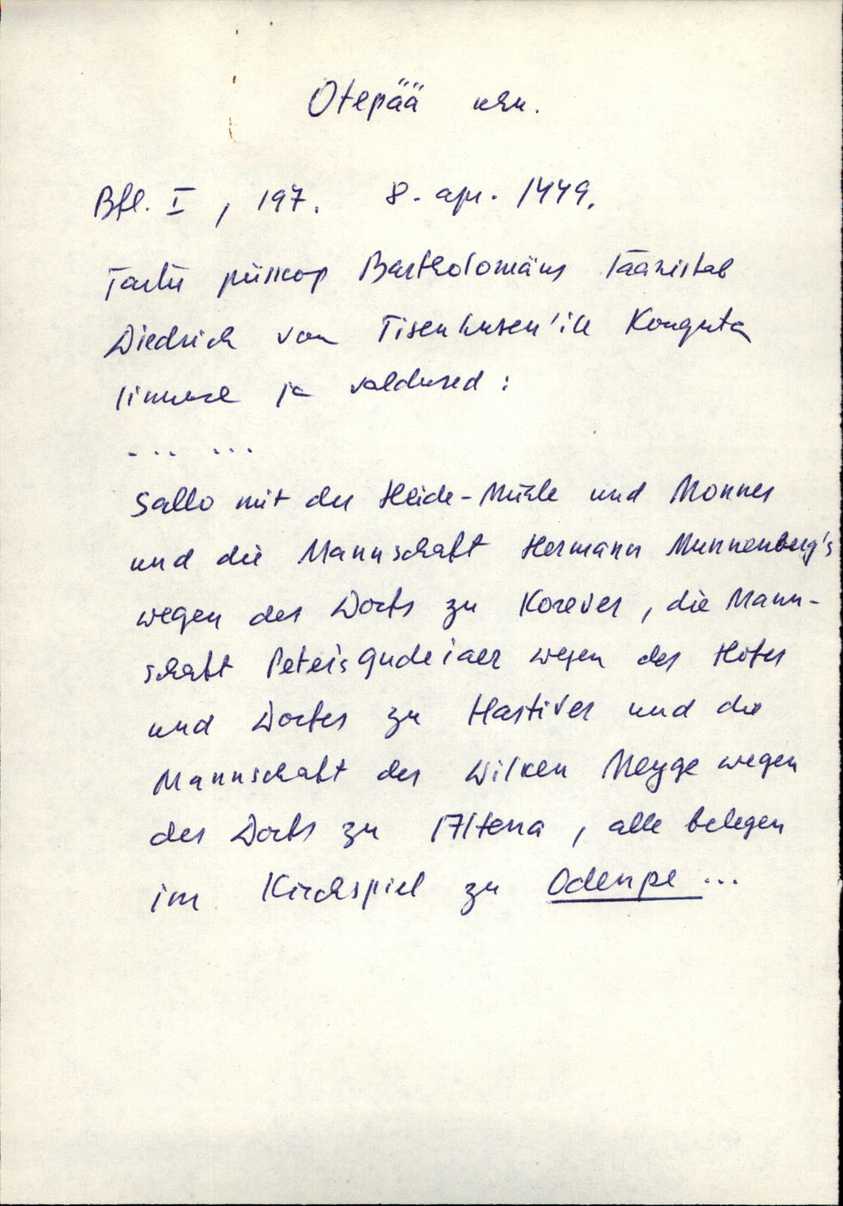 Otepää khn.
Bfl. I, 197. 8. apr. 1449.
Tartu piiskop Bartholomäus läänistab
Diedrich von Tisenhusen'ile Konguta
linnuse ja valdused:
... ...
Sallo mit der Heide-Mühle und Monnes
und die Mannschaft Hermann Munnenberg's
wegen des Dorfs zu Korever, die Mann-
schaft Peter's Gudejaer wegen des Hofes
und Dorfes zu Hastiver und die
Mannschaft des Wilken Meyge wegen
des Dorfs zu , alle belegen
im Kirchspiel zu Odenpe ...